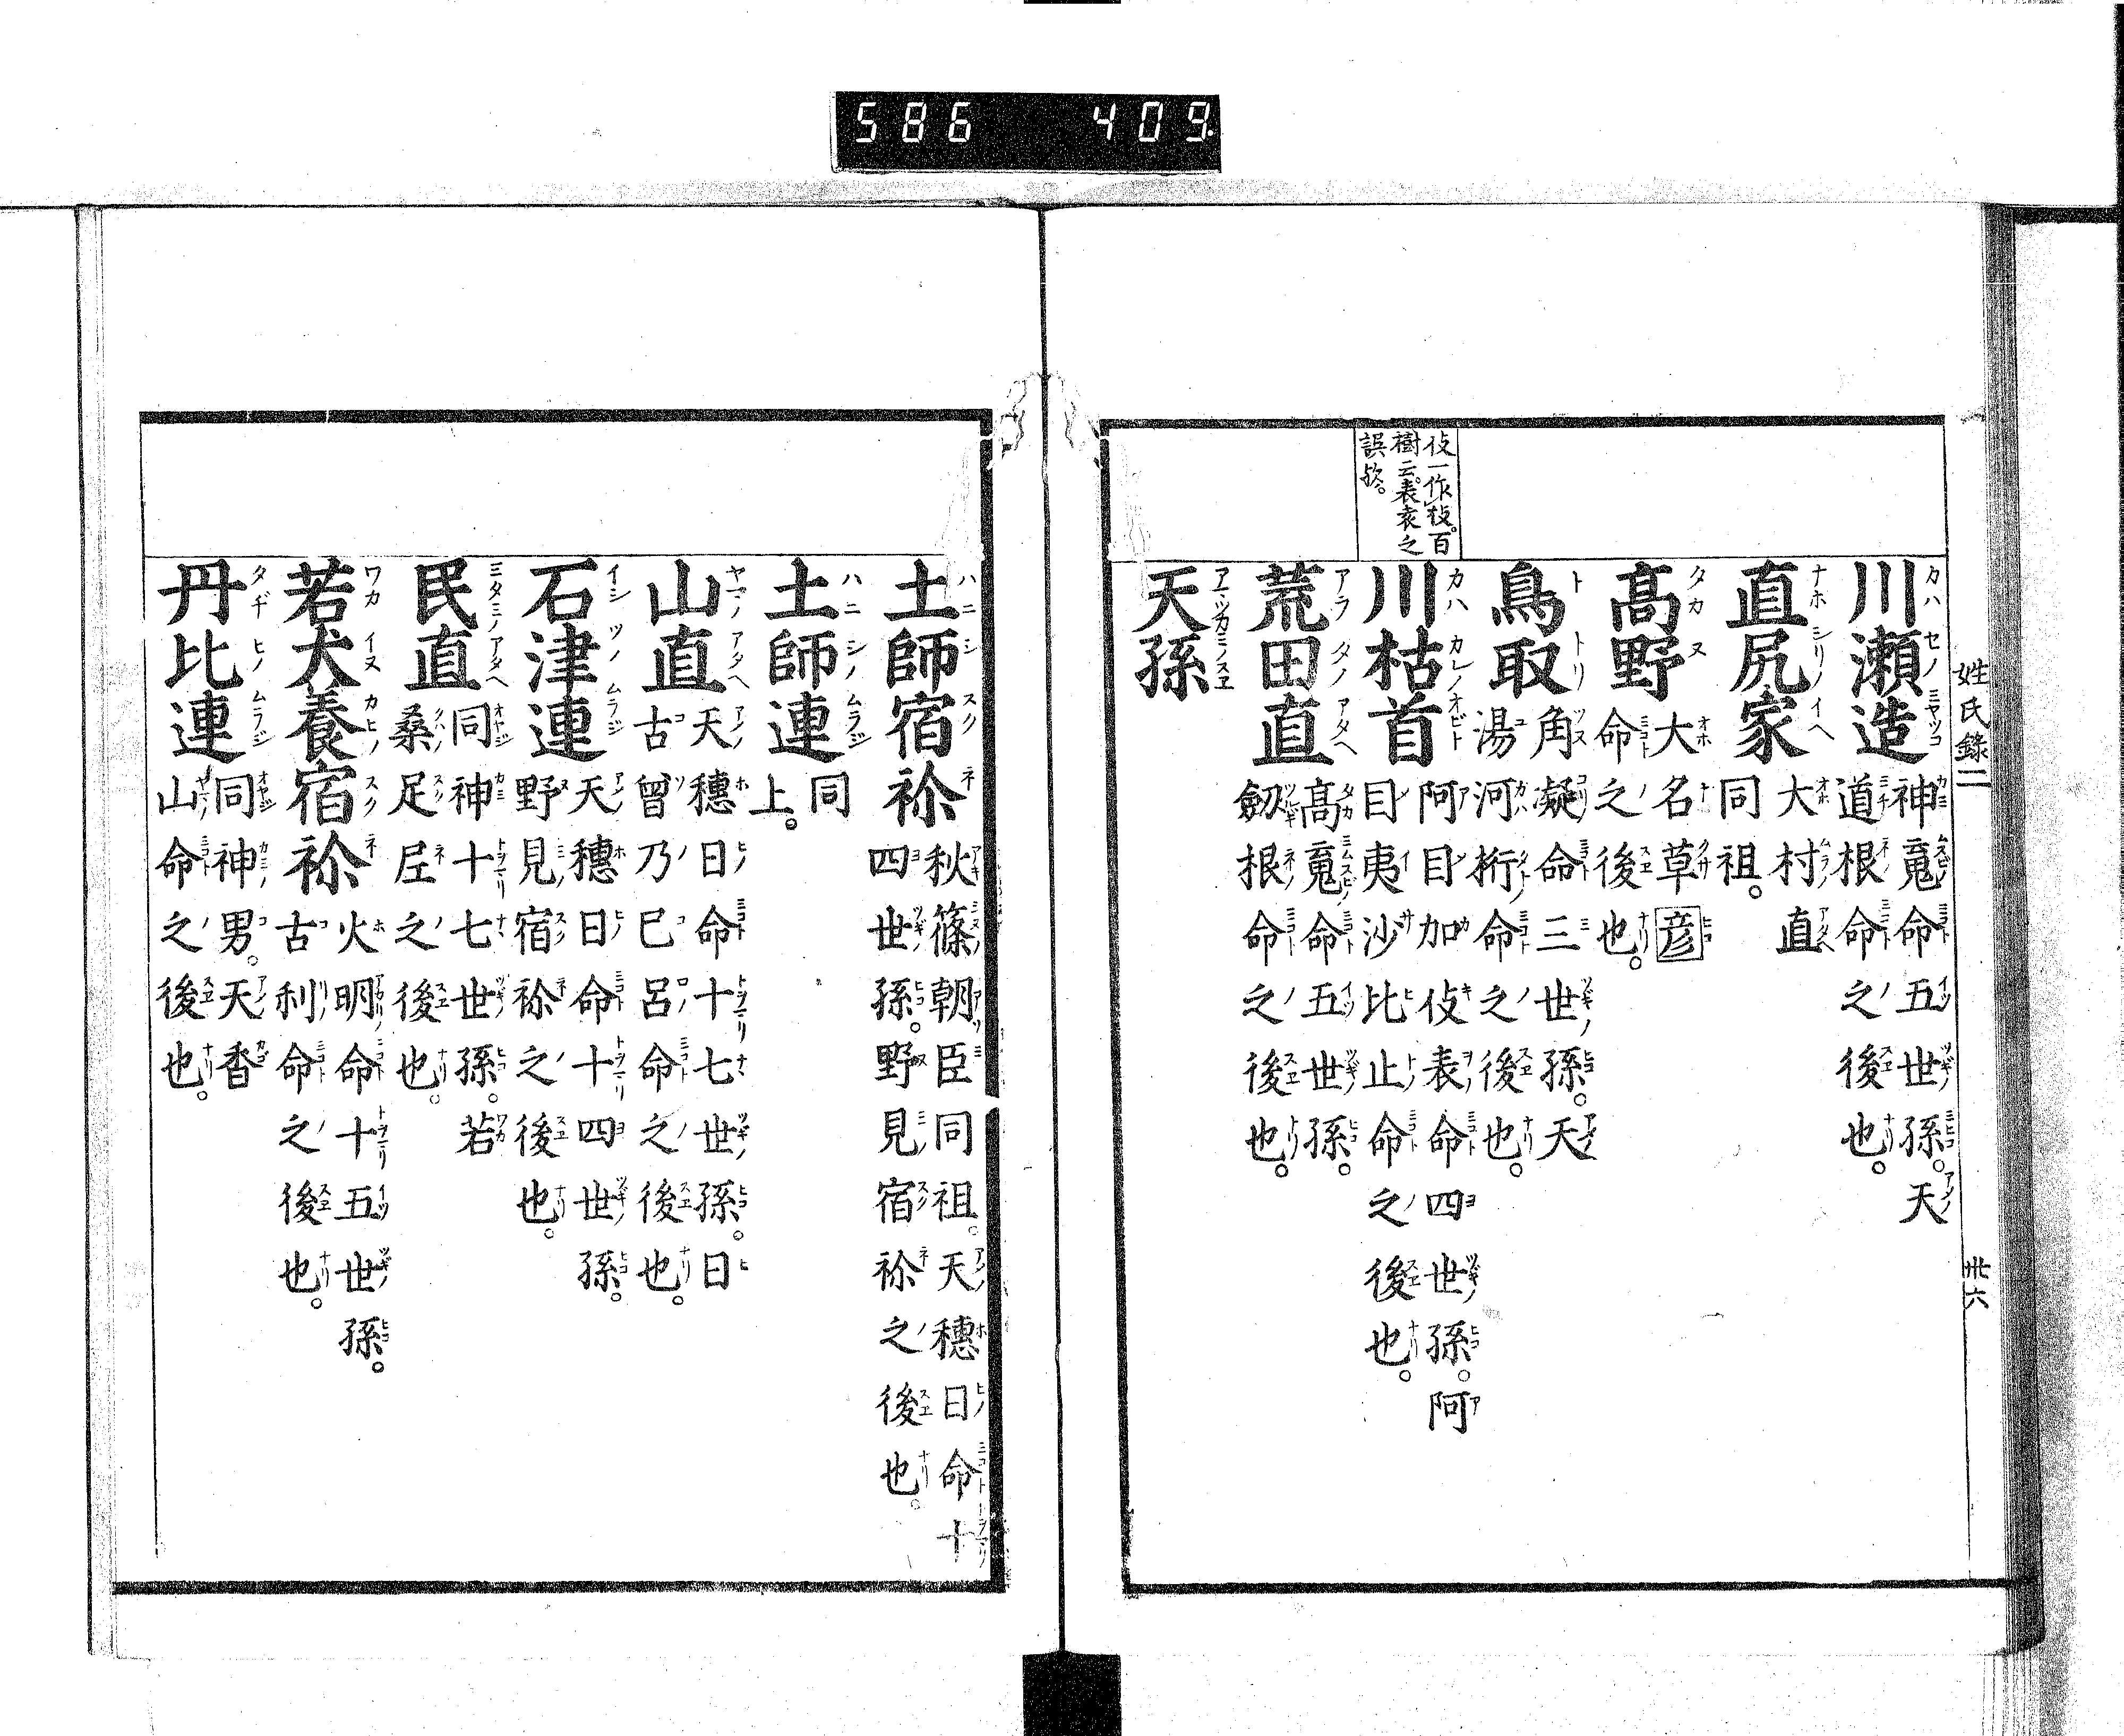 586 409
姓氏錄二
卅六
伎一作㭰。百
樹云。表衰之
誤歟。
川瀬造 神魂命五世孫。天
道根命之後也。
直尻家 大村直
同祖。
髙野 大名草彦
命之後也。
鳥取 角凝命三世孫。天
湯河桁命之後也。
川枯首 阿目加伎表命四世孫。阿
目夷沙比止命之後也。
荒田直 髙魂命五世孫。
劔根命之後也。
天孫
土師宿祢 秋篠朝臣同祖。天穗日命十
四世孫。野見宿祢之後也。
土師連 同
上。
山直 天穗日命十七世孫。日
古曾乃已呂命之後也。
石津連 天穗日命十四世孫。
野見宿祢之後也。
民直 同神十七世孫。若
桑足尼之後也。
若犬養宿祢 火明命十五世孫。
古利命之後也。
丹比連 同神男。天香
山命之後也。